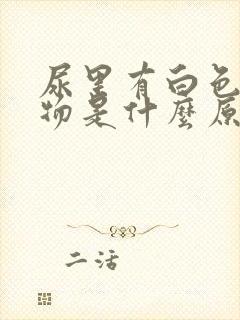 尿里有白色
物是什麼原
二活